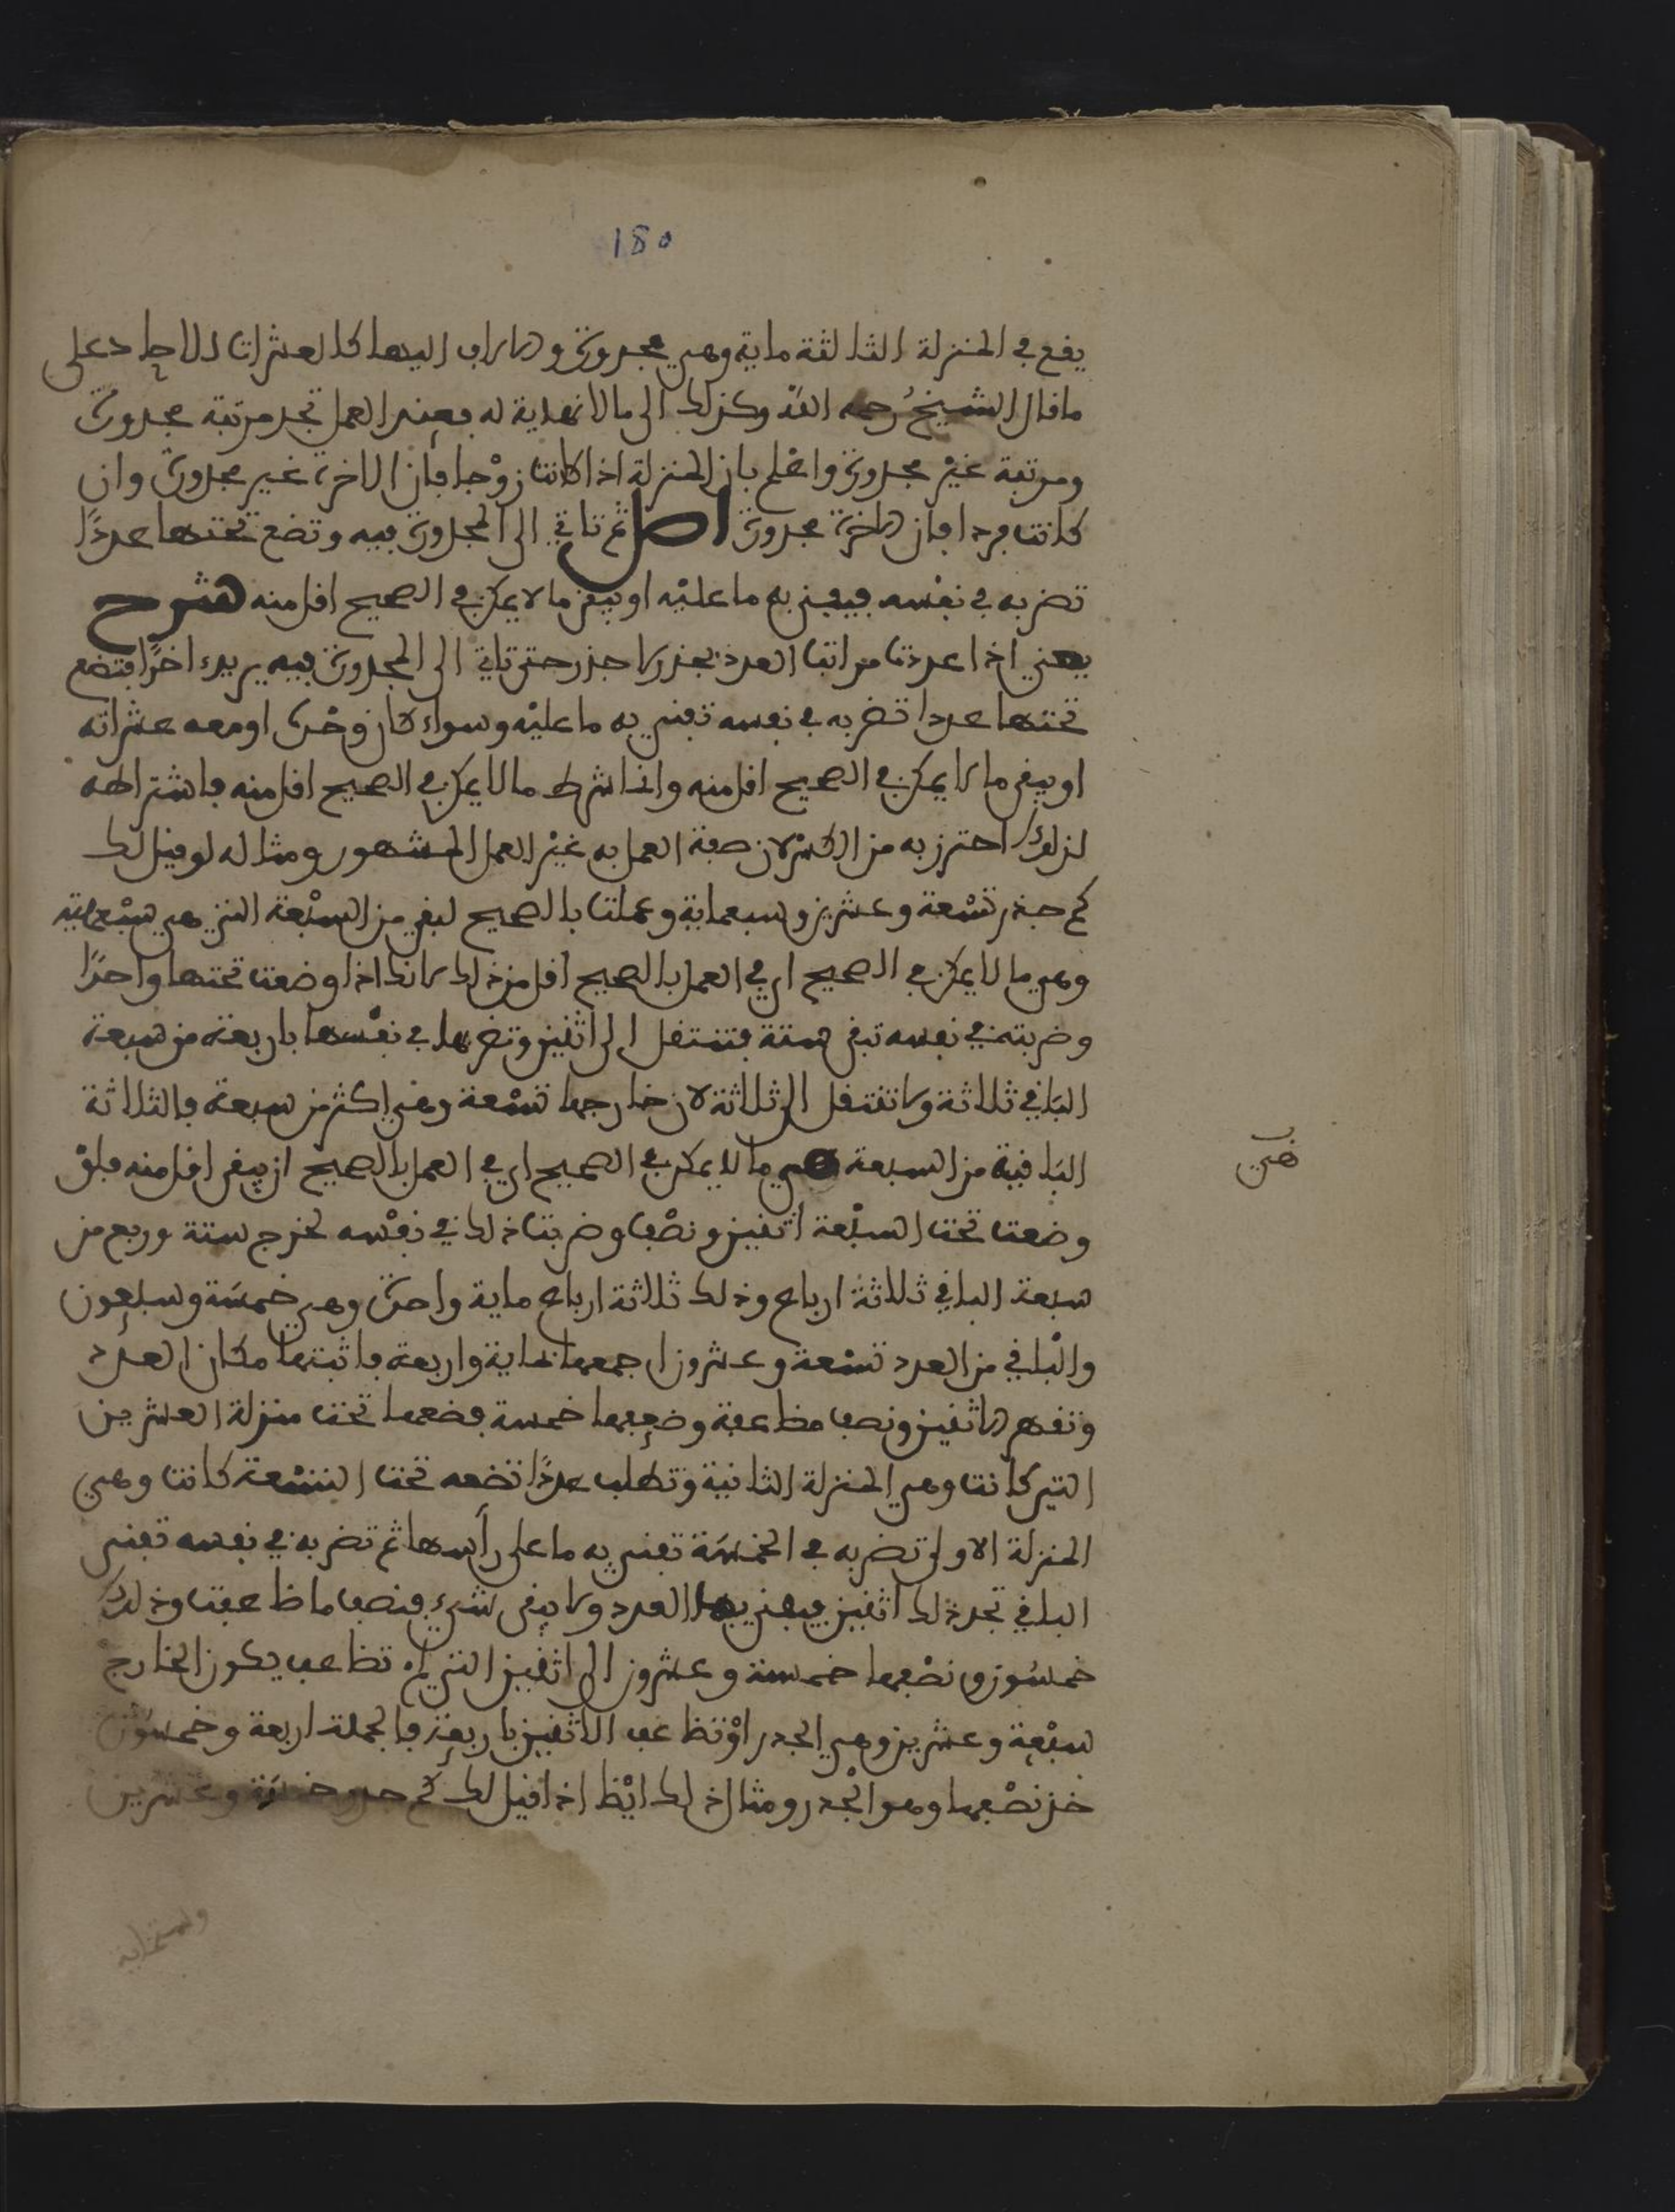 180
يقع في المنزلة الثالثة ماية وهي مجدورة والاراب اليها كالعشرات الاحاد على
ما قال الشيخ رحمه الله وكذلك الى ما لا نهاية له فعند العمل تجد مرتبة مجدورة
ومرتبة غير مجدورة واعلم بان المنزلة اذا كانت زوْجا فان الاخرة غير مجدورة وان
كانت فردا فان الاخرة مجدورة اصل ثم تاتي الى المجدورة فيه وتضع تحتها عددًا
تضربه في نفسه فيفنى به ما عليْه او يبقى ما لا يمكن في الصحيح اقل منه شرح
يعني اذا عددت مراتب العدد بجذر لا جذر حتى تاتي الى المجدورة فيه يريد اخرًا فتضع
تحتها عددا تضربه في نفسه تفني به ما عليْه وسواء كان وحْده او معه عشراته
او يبقى ما لا يمكن في الصحيح اقل منه وانما شرط ما لا يمكن في الصحيح اقل منه فاشتراطه
لذلك احترز به من الكسْر لان صفة العمل به غيْر العمل المشهور ومثاله لو قيل لك
كم جذر تسْعة وعشرين وسبعماية وعملت بالصحيح لبقي من السبْعة التي هي سبْعماية
وهي ما لا يمكن في الصحيح اي في العمل بالصحيح اقل من ذلك لانك اذا وضعت تحتها واحدًا
وضربته في نفسه تبقى ستة فتنتقل الى اثنين وتضربها في نفسها باربعة من سبعة
الباقي ثلاثة ولا تنتقل الى ثلاثة لان خارجها تسْعة وهي اكثر من سبعة فالثلاثة
الباقية من السبعة هي ما لا يمكن في الصحيح اي في العمل بالصحيح ان يبقى اقل منه فلوْ
هي
وضعت تحت السبْعة اثنين ونصْف وضربت ذلك في نفْسه لخرج ستة وربع من
سبعة الباقي ثلاثة ارباع وذلك ثلاثة ارباع ماية واحدة وهي خمسة وسبعون
والباقي من العدد تسْعة وعشرون اجمعها بماية واربعة فاثبتها مكان العدد
وتقهر الاثنين ونصف مضاعفة وضعفها خمسة فضعها تحت منزلة العشرين
التي كانت وهي المنزلة الثانية وتطلب عددًا تضعه تحت التسْعة كانت وهي
المنزلة الاولى تضربه في الخمسَة تفني به ما على رأسها ثم تضربه في نفسه تفني
الباقي تجد ذلك اثنين فيفنى بها العدد ولا يبقى شيء فنصف ما ضاعفت وذلك
خمسُون ونصْفها خمسة وعشرون الى اثنين التي لم تضاعف يكون الخارج
سبْعة وعشرين وهي الجدر اوْ تضاعف الاثنين باربعة فالجملة اربعة وخمسُون
خذ نصْفها وهو الجْدر ومثال ذلك ايْضا اذا قيل لك كم جدر خمسَة وعشرين
وستماية